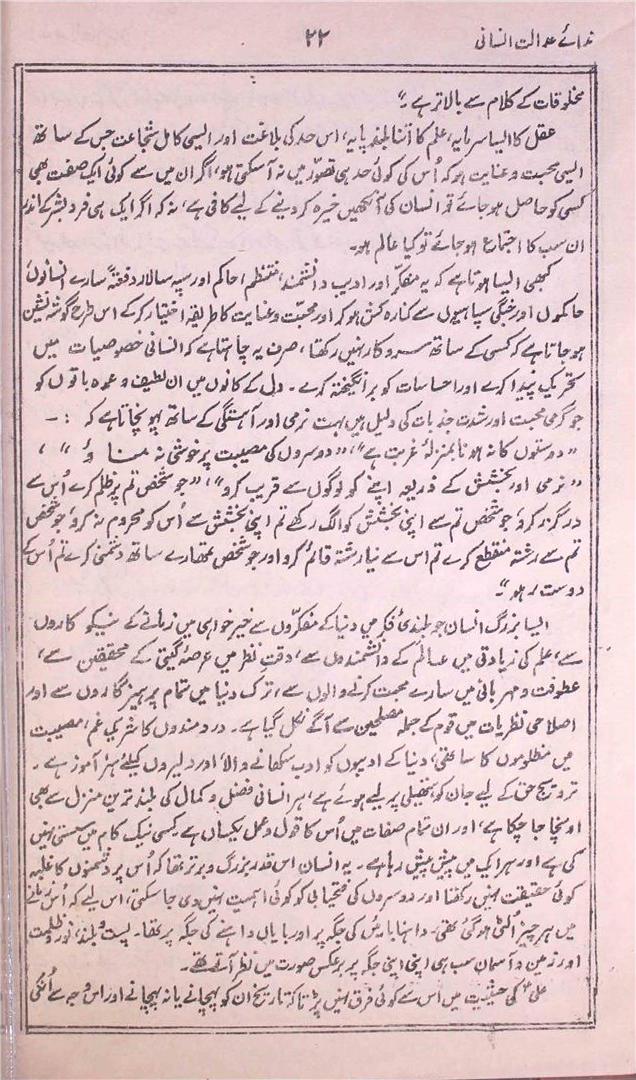 ندائے عدالت انسانی
۲۲
مخلوقات کے کلام سے بالاتر ہے۔"
عقل کا ایسا سرمایہ، علم کا اتنا بلند پایہ، اس حد کی بلاغت اور ایسی کامل شجاعت جس کے ساتھ
ایسی محبت و عنایت ہو کہ اُس کی کوئی حد ہی تصوّر میں نہ آسکتی ہو، اگر ان میں سے کوئی ایک صفت بھی
کسی کو حاصل ہو جائے تو انسان کی آنکھیں خیرہ کر دینے کے لیے کافی ہے، نہ کہ اگر ایک ہی فرد بشر کے اندر
ان سب کا اجتماع ہو جائے تو کیا عالم ہو۔
کبھی ایسا ہوتا ہے کہ یہ مفکّر اور ادیب دانشمند، منتظم، حاکم اور سپہ سالار دفعتہً سارے انسانوں
حاکموں اور جنگی سپاہیوں سے کنارہ کش ہو کر اور محبّت و عنایت کا طریقہ اختیار کر کے اس طرح گوشہ نشین
ہو جاتا ہے کہ کسی کے ساتھ سروکار نہیں رکھتا، صرف یہ چاہتا ہے کہ انسانی خصوصیات میں
تحریک پیدا کرے اور احساسات کو برانگیختہ کرے۔ دل کے کانوں میں ان لطیف و عمدہ باتوں کو
جو گرمی محبت اور شدت جذبات کی دلیل ہیں بہت نرمی اور آہستگی کے ساتھ پہونچاتا ہے کہ :۔
"دوستوں کا نہ ہونا بمنزلۂ غربت ہے"، "دوسروں کی مصیبت پر خوشی نہ مناؤ"،
"نرمی اور بخشش کے ذریعہ اپنے کو لوگوں سے قریب کرو"، "جو شخص تم پر ظلم کرے اُس سے
درگزر کرو، جو شخص تم سے اپنی بخشش کو الگ رکھے تم اپنی بخشش سے اُس کو محروم نہ کرو، جو شخص
تم سے رشتہ منقطع کرے تم اس سے نیا رشتہ قائم کرو اور جو شخص تمھارے ساتھ دشمنی کرے تم اُس کے
دوست رہو"۔
ایسا بزرگ انسان جو بلندیٔ فکر میں دنیا کے مفکّروں سے خیر خواہی میں زمانے کے نیکو کاروں
سے، علم کی زیادتی میں عالم کے دانشمندوں سے، دقتِ نظر میں عرصۂ گیتی کے محققین سے،
عطوفت و مہربانی میں سارے محبت کرنے والوں سے، ترک دنیا میں تمام پرہیزگاروں سے اور
اصلاحی نظریات میں قوم کے جملہ مصلحین سے آگے نکل گیا ہے۔ دردمندوں کا شریکِ غم، مصیبت
میں مظلوموں کا ساتھی، دنیا کے ادیبوں کو ادب سکھانے والا، اور دلیروں کیلئے ہنر آموز ہے۔
ترویج حق کے لیے جان کو ہتھیلی پر لیے ہوئے ہے، ہر انسانی فضل و کمال کی بلند ترین منزل سے بھی
اونچا جا چکا ہے، اور ان تمام صفات میں اُس کا قول و عمل یکساں ہے، کسی نیک کام میں سستی نہیں
کی ہے اور ہر ایک میں پیش پیش رہا ہے۔ یہ انسان اس قدر بزرگ و برتر تھا کہ اُس پر دشمنوں کا غلبہ
کوئی حقیقت نہیں رکھتا اور دوسروں کی فتحیابی کو کوئی اہمیت نہیں دی جا سکتی، اس لیے کہ اُس زمانے
میں ہر چیز اُلٹی ہو گئی تھی۔ داہنا بائیں کی جگہ پر اور بایاں داہنے کی جگہ پر تھا۔ پست و بلند، نور و ظلمت
اور زمین و آسمان سب ہی اپنی اپنی جگہ پر برعکس صورت میں نظر آتے تھے۔
علیؑ کی حیثیت میں اس سے کوئی فرق نہیں پڑتا کہ تاریخ ان کو پہچانے یا نہ پہچانے اور اس وجہ سے اُنکی